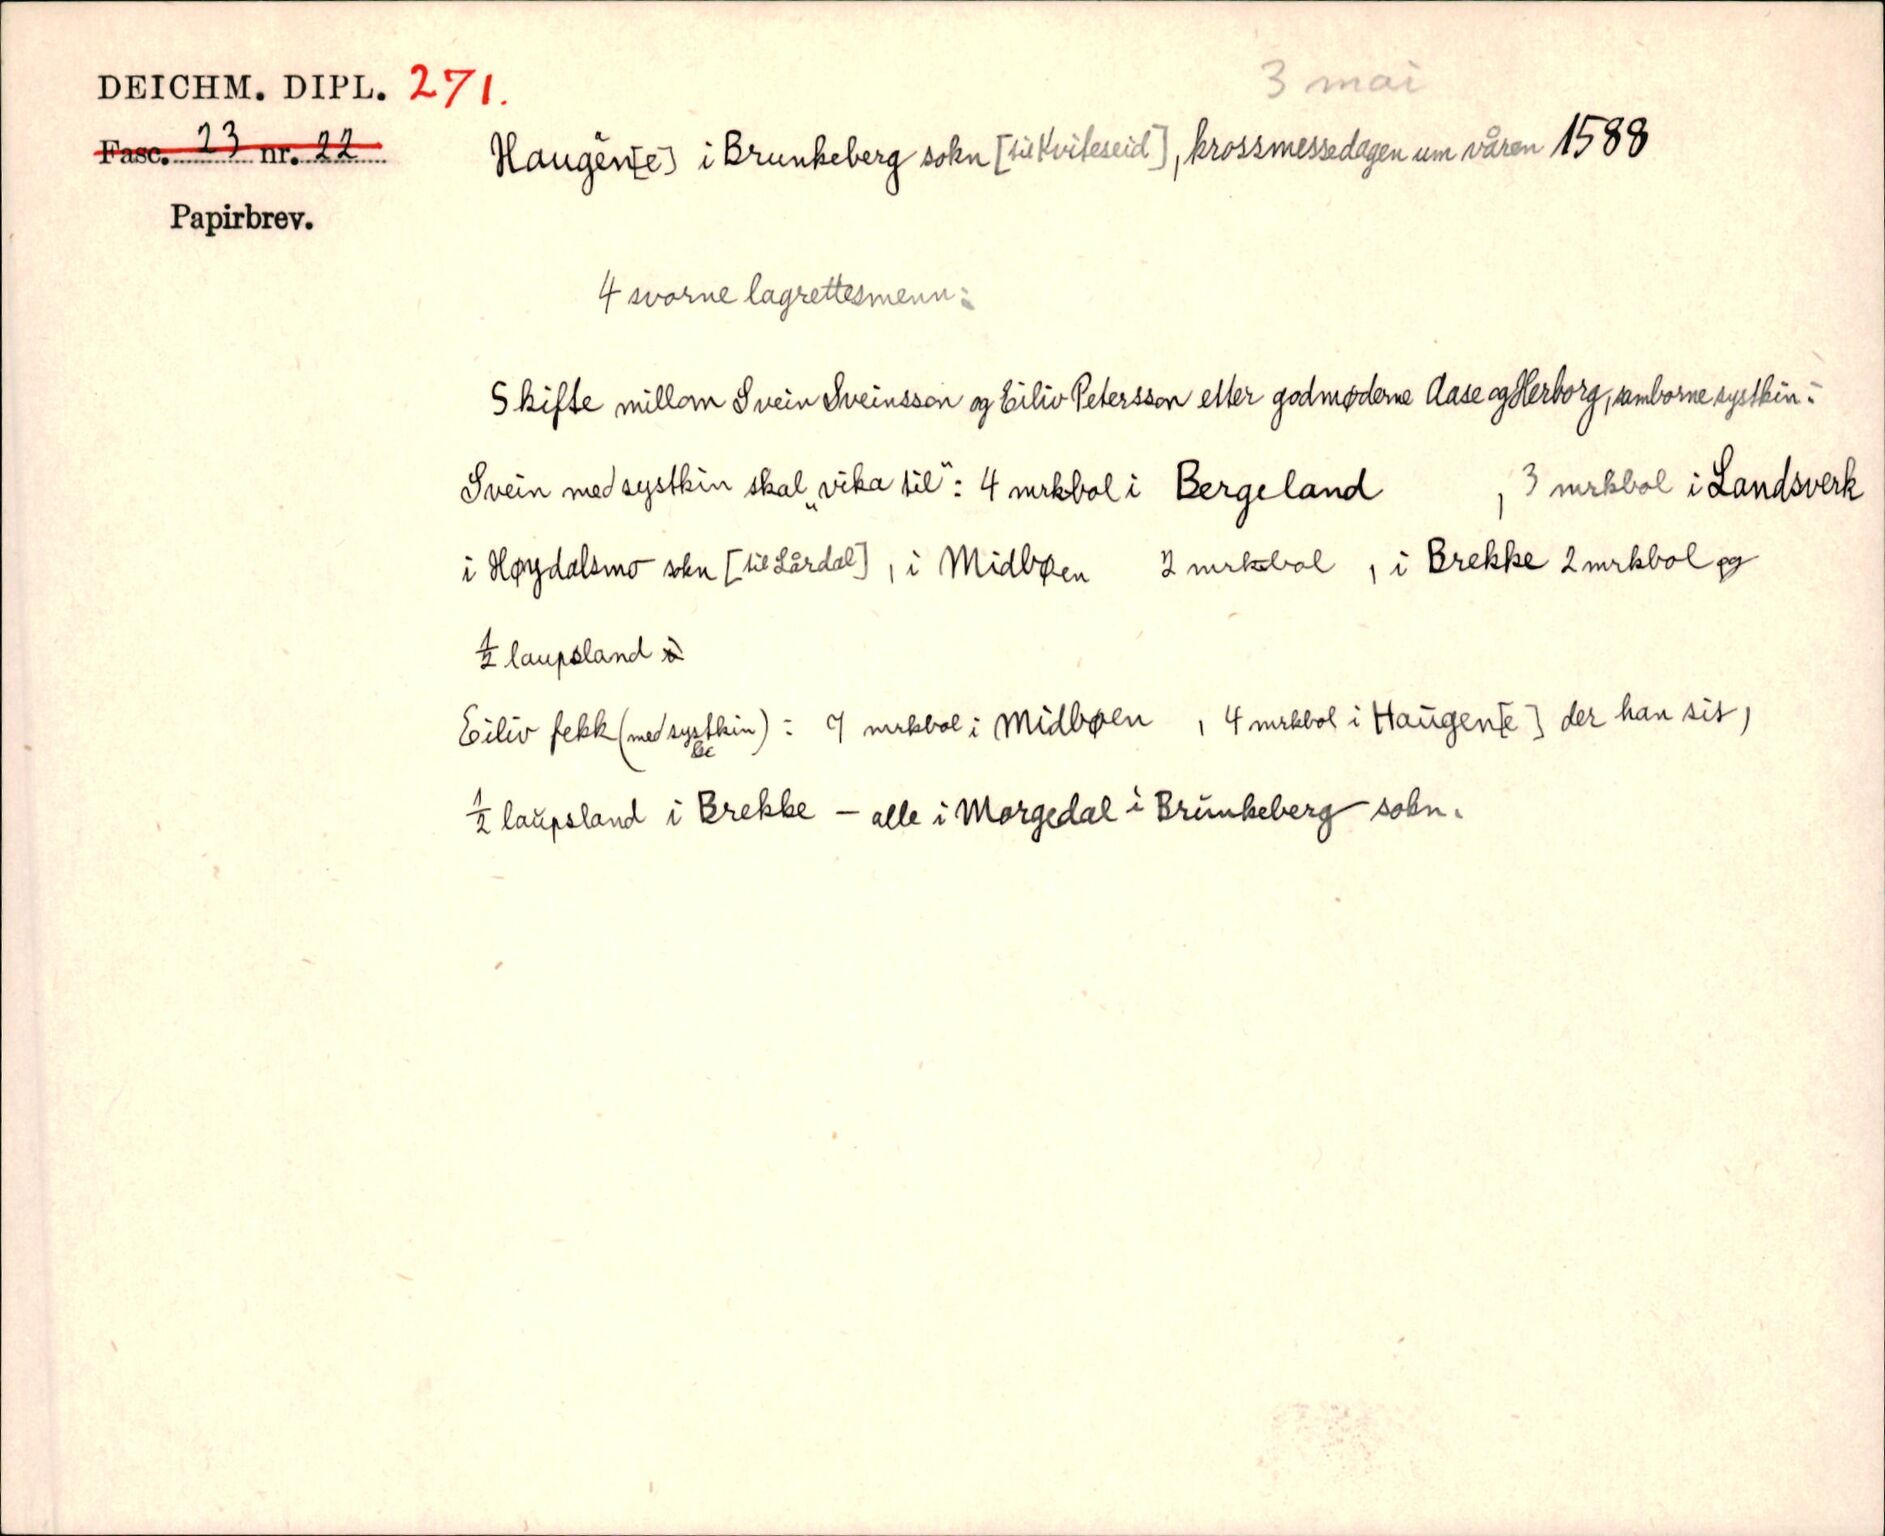 DEICHM. DIPL. 271.
3 mai
Fasc. 23 nr. 22
Haugen[e] i Brunkeberg sokn [til Kviteseid], krossmessedagen um våren 1588
Papirbrev.
4 svorne lagrettesmenn:
Skifte millom Svein Sveinsson og Eiliv Petersson etter godmøderne Aase og Herborg, samborne systkin:
Svein med systkin skal „vika til“: 4 mrkbol i Bergeland , 3 mrkbol i Landsverk
i Høydalsmo sokn [til Lårdal], i Midbøen 2 mrkbol , i Brekke 2 mrkbol og
½ laupsland
Eiliv fekk (med systkin): 7 mrkbol i Midbøen , 4 mrkbol i Haugen[e] der han sit,
½ laupsland i Brekke – alle i Morgedal i Brunkeberg sokn.